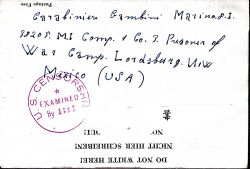 Postage Free
Carabiniere Gambini Marino P.I.
38205. M.I Comp. 1 Co. I. Prisoner of
War Camp. Lordsburg. New
Mexico (USA)
U.S. CENSORSHIP
EXAMINED
By
DO NOT WRITE HERE!
NICHT HIER SCHREIBEN!